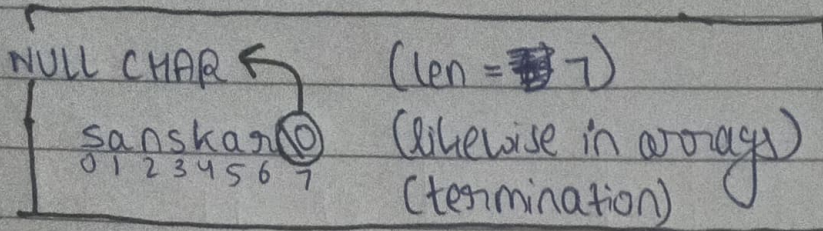 NULL CHAR (len = 7)
sanskar\0 (likewise in arrays)
0 1 2 3 4 5 6 7 (termination)